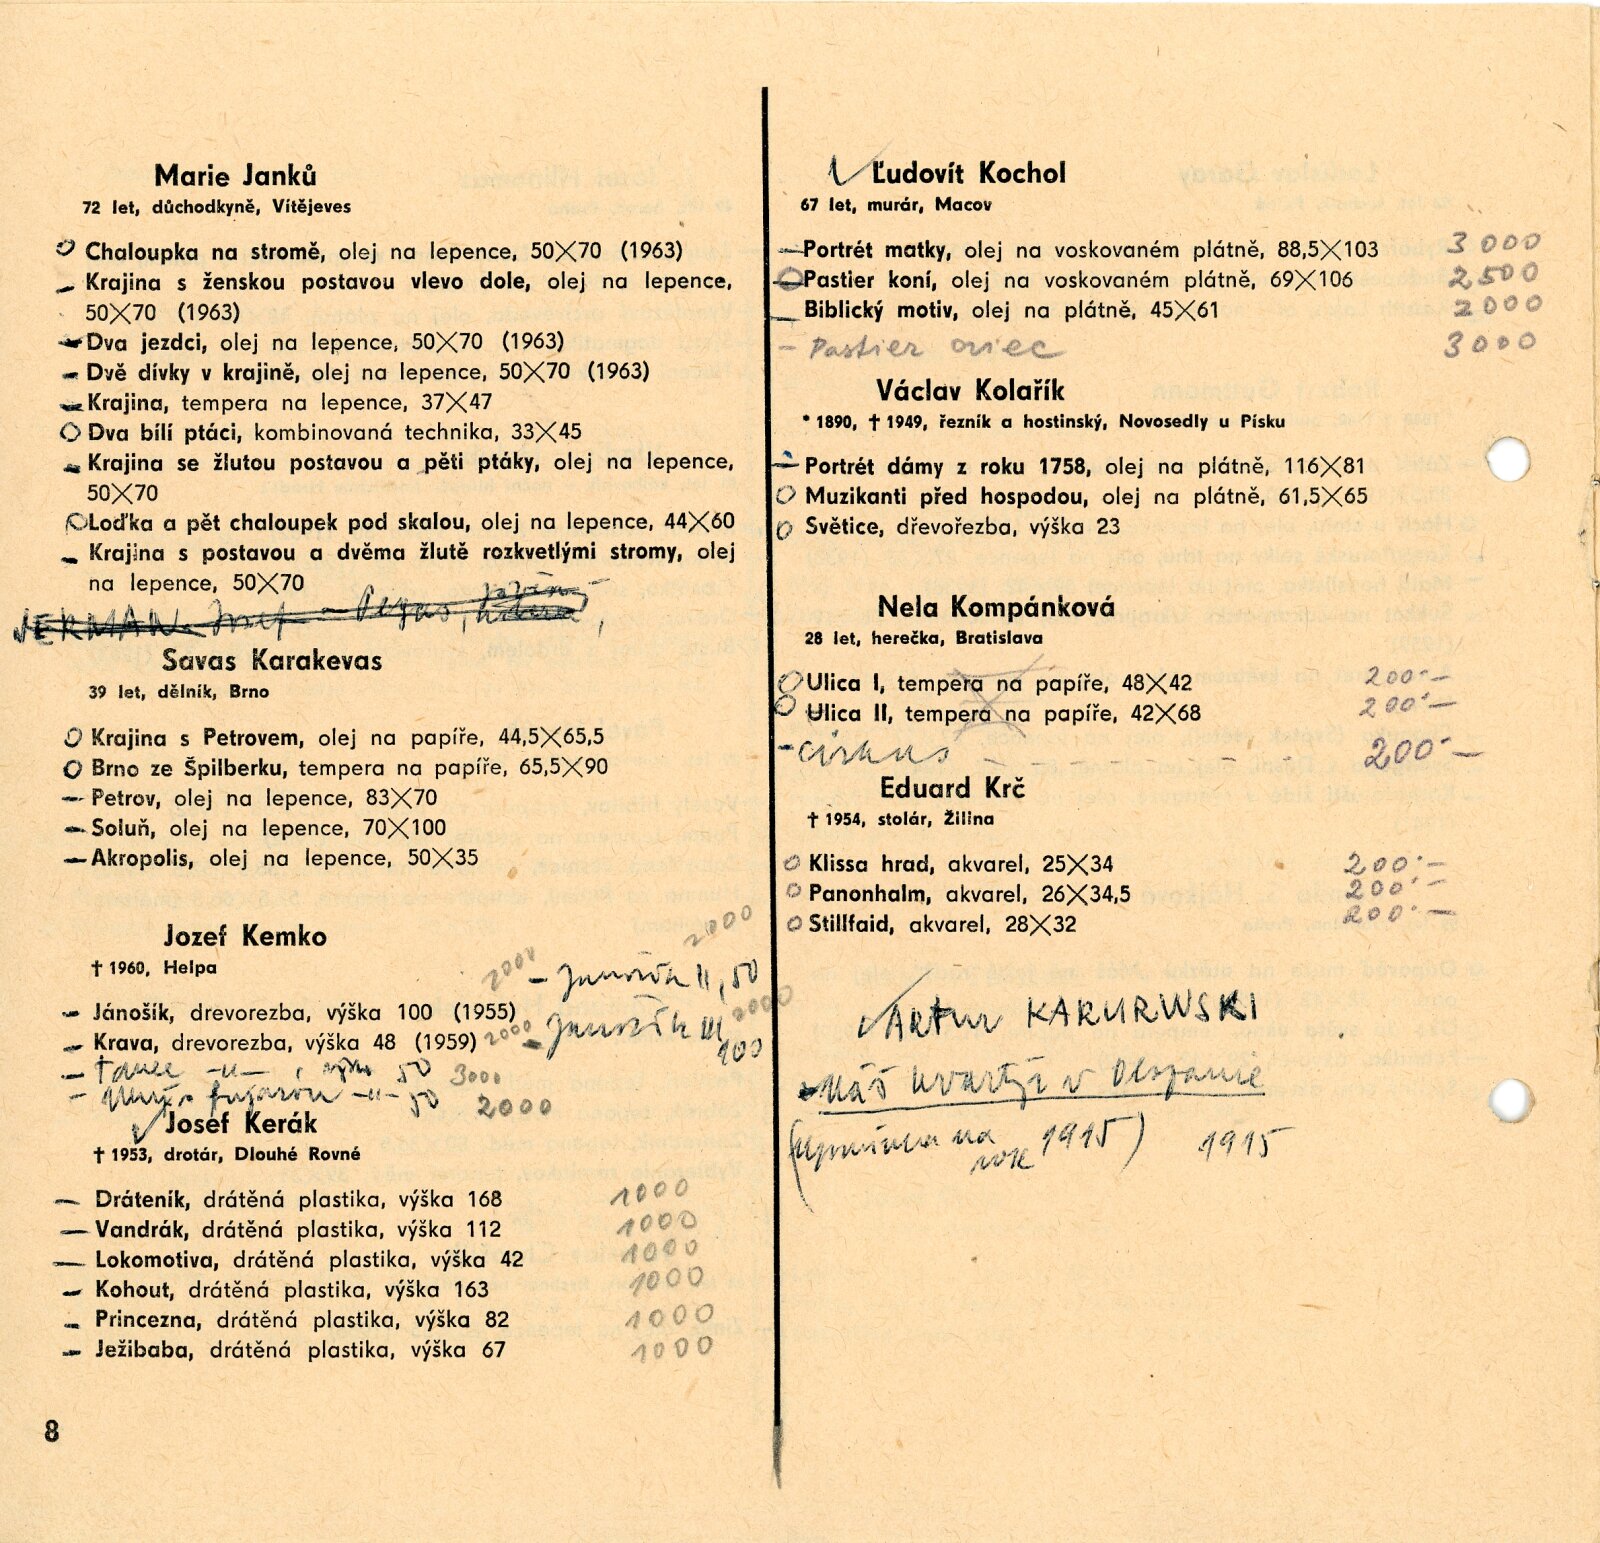 Marie Janků
72 let, důchodkyně, Vítějeves
Chaloupka na stromě, olej na lepence, 50×70 (1963)
Krajina s ženskou postavou vlevo dole, olej na lepence,
50×70 (1963)
Dva jezdci, olej na lepence, 50×70 (1963)
Dvě dívky v krajině, olej na lepence, 50×70 (1963)
Krajina, tempera na lepence, 37×47
Dva bílí ptáci, kombinovaná technika, 33×45
Krajina se žlutou postavou a pěti ptáky, olej na lepence,
50×70
Loďka a pět chaloupek pod skalou, olej na lepence, 44×60
Krajina s postavou a dvěma žlutě rozkvetlými stromy, olej
na lepence, 50×70
JERMAN Josef – Pegas,
Savas Karakevas
39 let, dělník, Brno
Krajina s Petrovem, olej na papíře, 44,5×65,5
Brno ze Špilberku, tempera na papíře, 65,5×90
– Petrov, olej na lepence, 83×70
– Soluň, olej na lepence, 70×100
– Akropolis, olej na lepence, 50×35
Jozef Kemko
2000
† 1960, Helpa
2000 – Janošík II, 50
– Jánošík, drevorezba, výška 100 (1955)
2000
– Krava, drevorezba, výška 48 (1959) 2000 – Janošík III 100
– Tanec –"– , výška 50 3000
– –"– 50 2000
Josef Kerák
† 1953, drotár, Dlouhé Rovné
– Dráteník, drátěná plastika, výška 168 1000
– Vandrák, drátěná plastika, výška 112 1000
– Lokomotiva, drátěná plastika, výška 42 1000
– Kohout, drátěná plastika, výška 163 1000
– Princezna, drátěná plastika, výška 82 1000
– Ježibaba, drátěná plastika, výška 67 1000
8
Ľudovít Kochol
67 let, murár, Macov
– Portrét matky, olej na voskovaném plátně, 88,5×103 3000
Pastier koní, olej na voskovaném plátně, 69×106 2500
– Biblický motiv, olej na plátně, 45×61 2000
– Pastier oviec 3000
Václav Kolařík
* 1890, † 1949, řezník a hostinský, Novosedly u Písku
– Portrét dámy z roku 1758, olej na plátně, 116×81
Muzikanti před hospodou, olej na plátně, 61,5×65
Světice, dřevořezba, výška 23
Nela Kompánková
28 let, herečka, Bratislava
Ulica I, tempera na papíře, 48×42 200·–
Ulica II, tempera na papíře, 42×68 200·–
– cirkus 200·–
Eduard Krč
† 1954, stolár, Žilina
Klissa hrad, akvarel, 25×34 200·–
Panonhalm, akvarel, 26×34,5 200·–
Stillfaid, akvarel, 28×32 200·–
Artur KARURWSKI
– Náš kvartýr v Olszanie
na rok 1915) 1915